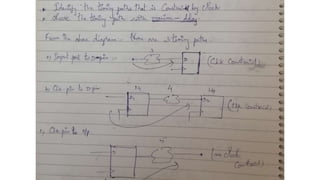 • Identify the timing paths that is Constrained by Clock
• share the timing path with minimum delay
From the above diagram - there are 3 timing paths.
a) Input port to D-pin
3
(Clk Constraint)
b) Clk pin to D-pin
4
(Clk Constraint)
c) Clk pin to O/p
4
(no Clock Constraint)